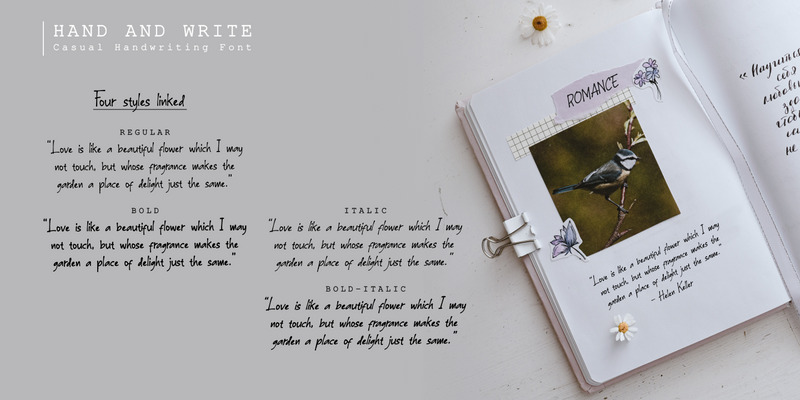 HAND AND WRITE
Casual Handwriting Font
Four styles linked
REGULAR
"Love is like a beautiful flower which I may
not touch, but whose fragrance makes the
garden a place of delight just the same."
BOLD
"Love is like a beautiful flower which I may
not touch, but whose fragrance makes the
garden a place of delight just the same."
ITALIC
"Love is like a beautiful flower which I may
not touch, but whose fragrance makes the
garden a place of delight just the same."
BOLD-ITALIC
"Love is like a beautiful flower which I may
not touch, but whose fragrance makes the
garden a place of delight just the same."
ROMANCE
"Love is like a beautiful flower which I may
not touch, but whose fragrance makes the
garden a place of delight just the same."
- Helen Keller
не